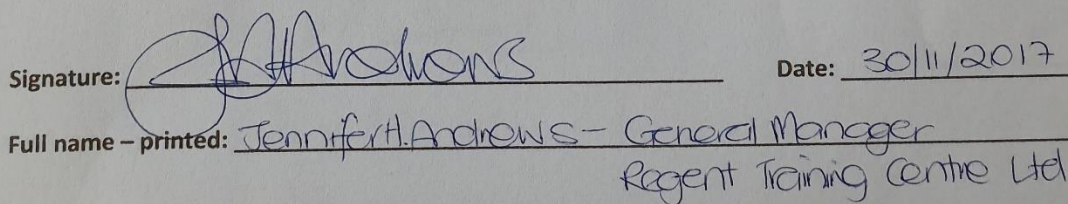 Signature: JHAndrews Date: 30/11/2017
Full name – printed: Jennifer H. Andrews – General Manager
Regent Training Centre Ltd